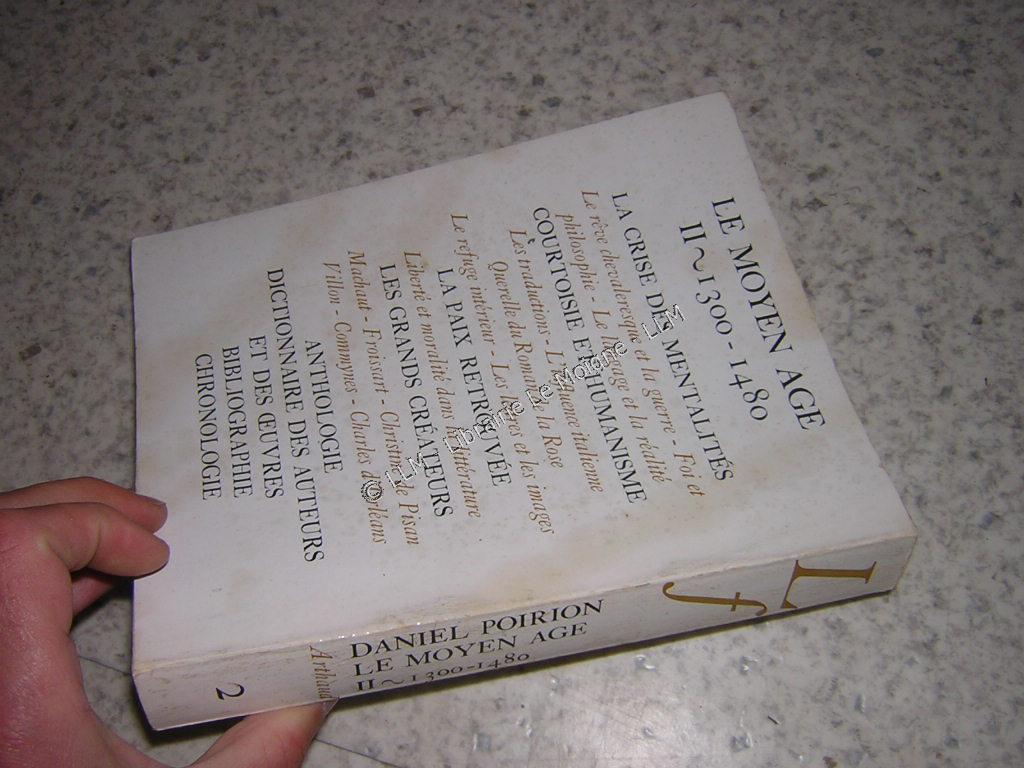 LE MOYEN AGE
II ~ 1300 - 1480
LA CRISE DES MENTALITÉS
Le rêve chevaleresque et la guerre - Foi et
philosophie - Le langage et la réalité
COURTOISIE ET HUMANISME
Les traductions - L'influence italienne
Querelle du Roman de la Rose
Le refuge intérieur - Les livres et les images
LA PAIX RETROUVÉE
Liberté et moralité dans la littérature
LES GRANDS CRÉATEURS
Machaut - Froissart - Christine de Pisan
Villon - Commynes - Charles d'Orléans
ANTHOLOGIE
DICTIONNAIRE DES AUTEURS
ET DES ŒUVRES
BIBLIOGRAPHIE
CHRONOLOGIE
Lf
DANIEL POIRION
LE MOYEN AGE
II ~ 1300-1480
Arthaud
2
© LLM - Librairie Le Moigne - LLM